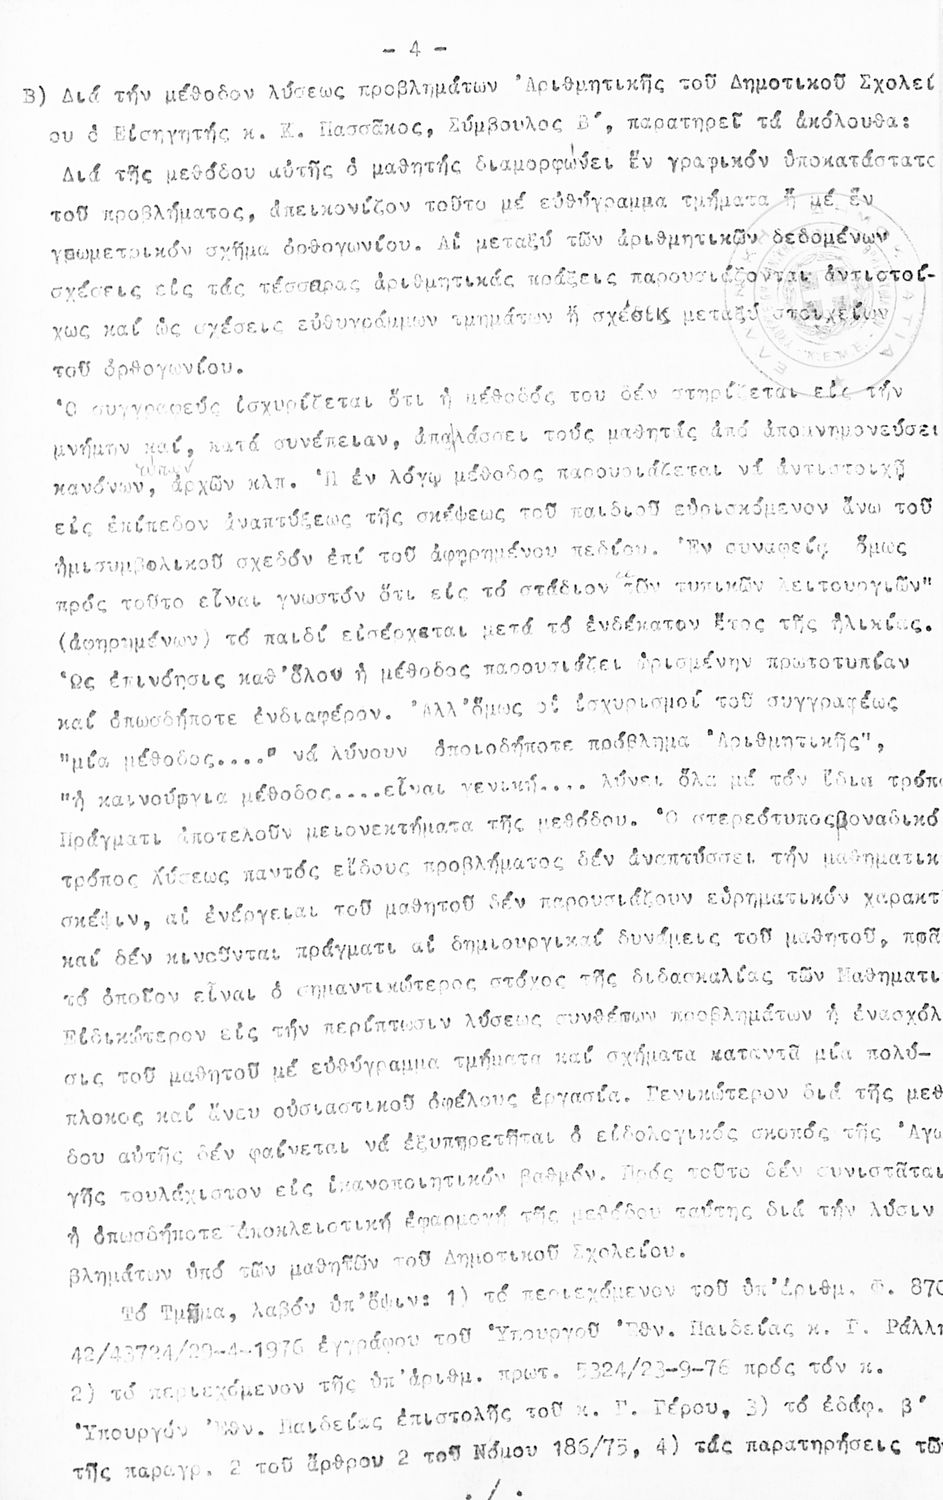 - 4 -
Β) Διά τήν μέθοδον λύσεως προβλημάτων Ἀριθμητικῆς τοῦ Δημοτικοῦ Σχολεί
ου ὁ Εἰσηγητής κ. Κ. Πασσᾶκος, Σύμβουλος Β΄, παρατηρεῖ τά ἀκόλουθα:
Διά τῆς μεθόδου αὐτῆς ὁ μαθητής διαμορφώνει ἕν γραφικόν ὑποκατάστατο
τοῦ προβλήματος, ἀπεικονίζον τοῦτο μέ εὐθύγραμμα τμήματα ἤ μέ ἕν
γεωμετρικόν σχῆμα ὀρθογωνίου. Αἱ μεταξύ τῶν ἀριθμητικῶν δεδομένων
σχέσεις εἰς τάς τέσσερας ἀριθμητικάς πράξεις παρουσιάζονται ἀντιστοί-
χως καί ὡς σχέσεις εὐθυγράμμων τμημάτων ἤ σχέσις μεταξύ στοιχείων
τοῦ ὀρθογωνίου.
Ὁ συγγραφεύς ἰσχυρίζεται ὅτι ἡ μέθοδός του δέν στηρίζεται εἰς τήν
μνήμην καί, κατά συνέπειαν, ἀπαλάσσει τούς μαθητάς ἀπό ἀπομνημονεύσει
κανόνων, τύπων ἀρχῶν κλπ. Ἡ ἐν λόγῳ μέθοδος παρουσιάζεται νά ἀντιστοιχῇ
εἰς ἐπίπεδον ἀναπτύξεως τῆς σκέψεως τοῦ παιδιοῦ εὑρισκόμενον ἄνω τοῦ
ἡμισυμβολικοῦ σχεδόν ἐπί τοῦ ἀφηρημένου πεδίου. Ἐν συναφείᾳ ὅμως
πρός τοῦτο εἶναι γνωστόν ὅτι εἰς τό στάδιον "τῶν τυπικῶν λειτουργιῶν"
(ἀφηρημένων) τό παιδί εἰσέρχεται μετά τό ἑνδέκατον ἔτος τῆς ἡλικίας.
Ὡς ἐπινόησις καθ'ὅλου ἡ μέθοδος παρουσιάζει ὡρισμένην πρωτοτυπίαν
καί ὁπωσδήποτε ἐνδιαφέρον. Ἀλλ'ὅμως οἱ ἰσχυρισμοί τοῦ συγγραφέως
"μία μέθοδος...." νά λύνουν ὁποιοδήποτε πρόβλημα Ἀριθμητικῆς",
"ἡ καινούργια μέθοδος....εἶναι γενική.... λύνει ὅλα μέ τόν ἴδιο τρόπο
Πράγματι ἀποτελοῦν μειονεκτήματα τῆς μεθόδου. Ὁ στερεότυπος μοναδικό
τρόπος λύσεως παντός εἴδους προβλήματος δέν ἀναπτύσσει τήν μαθηματικ
σκέψιν, αἱ ἐνέργειαι τοῦ μαθητοῦ δέν παρουσιάζουν εὑρηματικόν χαρακτ
καί δέν κινοῦνται πράγματι αἱ δημιουργικαί δυνάμεις τοῦ μαθητοῦ, πρᾶ
τό ὁποῖον εἶναι ὁ σημαντικώτερος στόχος τῆς διδασκαλίας τῶν Μαθηματι
Εἰδικώτερον εἰς τήν περίπτωσιν λύσεως συνθέτων προβλημάτων ἡ ἐνασχόλ
σις τοῦ μαθητοῦ μέ εὐθύγραμμα τμήματα καί σχήματα καταντᾶ μία πολύ-
πλοκος καί ἄνευ οὐσιαστικοῦ ὀφέλους ἐργασία. Γενικώτερον διά τῆς μεθ
δου αὐτῆς δέν φαίνεται νά ἐξυπηρετῆται ὁ εἰδολογικός σκοπός τῆς Ἀγω
γῆς τουλάχιστον εἰς ἱκανοποιητικόν βαθμόν. Πρός τοῦτο δέν συνιστᾶται
ἡ ὁπωσδήποτε ἀποκλειστική ἐφαρμογή τῆς μεθόδου ταύτης διά τήν λύσιν
βλημάτων ὑπό τῶν μαθητῶν τοῦ Δημοτικοῦ Σχολείου.
Τό Τμῆμα, λαβόν ὑπ'ὄψιν: 1) τό περιεχόμενον τοῦ ὑπ'ἀριθμ. Φ. 870
42/43724/29-4-1976 ἐγγράφου τοῦ Ὑπουργοῦ Ἐθν. Παιδείας κ. Γ. Ράλλη
2) τό περιεχόμενον τῆς ὑπ'ἀριθμ. πρωτ. 5324/23-9-76 πρός τόν κ.
Ὑπουργόν Ἐθν. Παιδείας ἐπιστολῆς τοῦ κ. Γ. Γέρου, 3) τό ἐδάφ. β΄
τῆς παραγρ. 2 τοῦ ἄρθρου 2 τοῦ Νόμου 186/75, 4) τάς παρατηρήσεις τῶν
./.